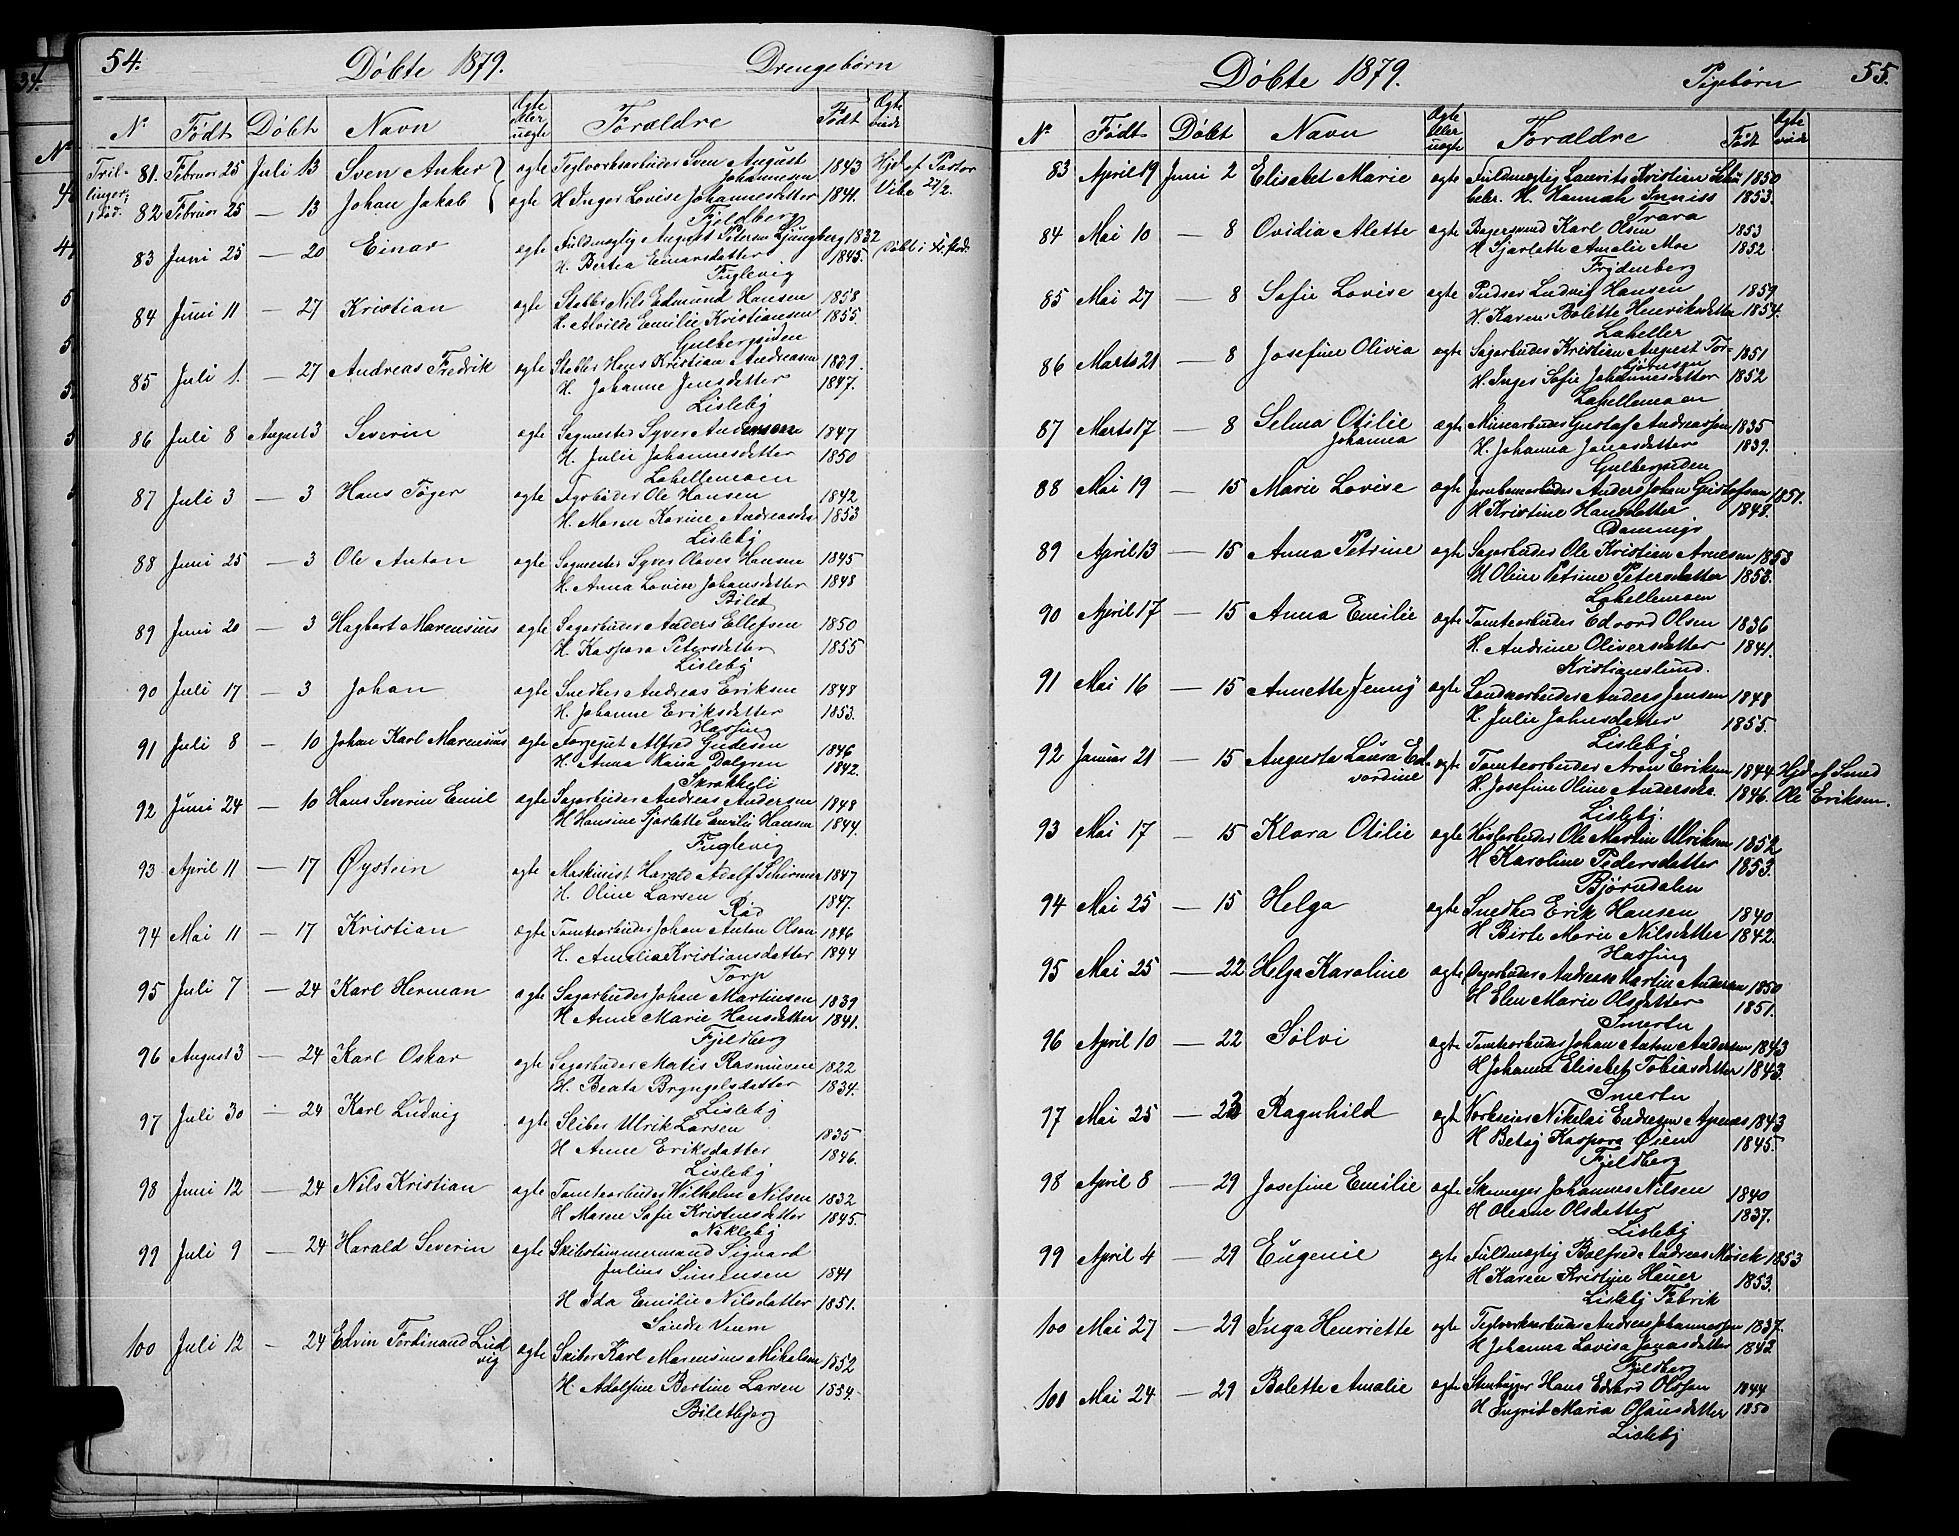 54.
Døbte 1879.
Drengebørn
N° Født Døbt Navn Ægte eller uægte Forældre Født
Trillinger; 1 død.
81. Februar 25 Juli 13 Sven Anker ægte Teglverksarbeider Sven August Johannesen 1843 Hjd af Pastor Vibe 27/2.
82 Februar 25 — 13 Johan Jakob ægte H. Inger Lovise Johannesdatter 1841.
Fjeldberg
83 Juni 25 — 20 Einar ægte Fuldmægtig August Petersen Ljungberg 1832
H. Bertea Einarsdatter 1845.
Fuglevig
84 Juni 11 — 27 Kristian ægte Stabber Nils Edmund Hansen 1858
H. Alvilde Emilie Kristiansen 1855.
Gulbergsiden
85 Juli 1. — 27 Andreas Fredrik ægte Hans Kristian Andreasen 1839.
H. Johanne Jensdatter 1847.
Lisleby
86 Juli 8 August 3 Severin ægte Sagmester Syver Andersen 1847
H. Julie Johannesdatter 1850
Labellemoen
87 Juli 3 — 3 Hans Tøger ægte Fyrbøder Ole Hansen 1842
H. Maren Karine Andreasda 1853
Lisleby
88 Juni 25 — 3 Ole Anton ægte Sagmester Syver Olaves Hansen 1845
H. Anna Lovise Johansdatter 1848
Bilet
89 Juni 20 — 3 Hagbart Marensius ægte Sagarbeider Anders Ellefsen 1850
H. Kaspara Petersdatter 1855
Lisleby
90 Juli 17 — 3 Johan ægte Snedker Andreas Eriksen 1848
H. Johanne Eriksdatter 1853.
Hassing
91 Juli 8 — 10 Johan Karl Marensius ægte Alfred Gudesen 1846
H. Anna Kaisa Dalgren 1842.
92 Juni 24 — 10 Hans Severin Emil ægte Sagarbeider Andreas Andersen 1848
H Hansine Sjarlotte Emilie Hansen 1844.
Fuglevig
93 April 11 — 17 Øystein ægte Maskinist Harald Adolf Schirmer 1847
H. Oline Larsen 1847.
Rød
94 Mai 11 — 17 Kristian ægte Tomtearbeider Johan Anton Olsen 1846
H. Amalia Kristiansdatter 1844
Torp
95 Juli 7 — 24 Karl Herman ægte Sagarbeider Johan Martinsen 1839
H Anne Marie Hansdatter 1841.
Fjeldberg
96 August 3 — 24 Karl Oskar ægte Sagarbeider Matis Rasmussen 1822
H. Beata Bryngelsdatter 1834.
Lisleby
97 Juli 30 — 24 Karl Ludvig ægte Sliber Ulrik Larsen 1835
H Anne Eriksdatter 1846.
Lisleby
98 Juni 12 — 24 Nils Kristian ægte Tomtearbeider Wilhelm Nilsen 1832
H Maren Sofie Kristensdatter 1845.
Nøkleby
99 Juli 9 — 24 Harald Severin ægte Skibstømmermand Sigvard
Julius Simensen 1841
H Ida Emilie Nilsdatter 1851.
Søndre Veum
100 Juli 12 — 24 Edvin Ferdinand Ludvig ægte Karl Marensius Mikalsen 1852
H Adolfine Bertine Larsen 1854.
Biletbjerg
Døbte 1879.
Pigebørn
55.
N° Født Døbt Navn Ægte eller uægte Forældre Født
83 April 19 Juni 2 Elisabet Marie ægte Fuldmægtig Laurits Kristian 1850
H. Hannah Inniss 1853.
Trara
84 Mai 10 — 8 Ovidia Alette ægte Bogersmed Karl Olsen 1853
H Sjarlotte Amalie Moe 1852
Frydenberg
85 Mai 27 — 8 Sofie Lovise ægte Pudser Ludvig Hansen 1859
H. Karen Bolette Henriksdatter 1854.
Labellen
86 Marts 21 — 8 Josefine Olivia ægte Sagarbeider Kristian August Torbjørnsen 1851
H. Inger Sofie Johannesdatter 1852
Labellemoen
87 Marts 17 — 8 Selma Otilie Johanna ægte Minearbeider Gustaf Andreassen 1835
H. Johanna Jonasdatter 1839.
Gulbergsiden
88 Mai 19 — 15 Marie Lovise ægte Jernbanearbeider Anders Johan Gustafsen 1851.
H Kristine Hansdatter 1848.
89 April 13 — 15 Anna Petrine ægte Sagarbeider Ole Kristian Arnesen 1853
H Oline Petrine Petersdatter 1853.
Labellemoen
90 April 17 — 15 Anna Emilie ægte Tomtearbeider Edvard Olsen 1836
H. Andrine Oliversdatter 1841.
Kristianslund.
91 Mai 16 — 15 Annette Jenny ægte Landarbeider Anders Jensen 1848
H. Julie Johnsdatter 1855.
Lisleby
92 Januar 21 — 15 Augusta Laura Edvardine ægte Tomtearbeider Aron Eriksen 1844 Hjd af Smed
H. Josefine Oline Andersda. 1846. Ole Eriksen.
Lisleby.
93 Mai 17 — 15 Klara Otilie ægte Ole Martin Ulriksen 1852
H Karoline Pedersdatter 1853.
Bjørndalen
94 Mai 25 — 15 Helga ægte Snedker Erik Hansen 1840
H Birte Marie Nilsdatter 1842.
Hassing
95 Mai 25 — 22 Helga Karoline ægte Sagarbeider Andreas Martin Andersen 1850
H Elen Marie Olsdatter 1851.
Smertu
96 April 10 — 22 Sølvi ægte Tomtearbeider Johan Anton Andersen 1843
H Johanna Elisabet Tobiasdatter 1843.
Smertu
97 Mai 25 — 23 Ragnhild ægte Verkseier Nikolai Endresen Agenæs 1843
H Betsy Kaspara Øien 1845.
Fjeldberg
98 April 8 — 29 Josefine Emilie ægte Johannes Nilsen 1840
H Oleane Olsdatter 1837.
Lisleby
99 April 4 — 29 Eugenie ægte Fuldmægtig Bolfred Andreas Mørck 1853
H Karen Kristine Hauer 1853.
Lisleby Fabrik
100 Mai 27 — 29 Inga Henriette ægte Teglverksarbeider Andreas Johannessen 1837.
H Johanna Lovisa Jonasdatter 1842
Fjeldberg
101 Mai 24 — 29 Bolette Amalie ægte Stenhugger Hans Edvard Olsen 1844
H Ingrid Maria Olausdatter 1850
Lisleby